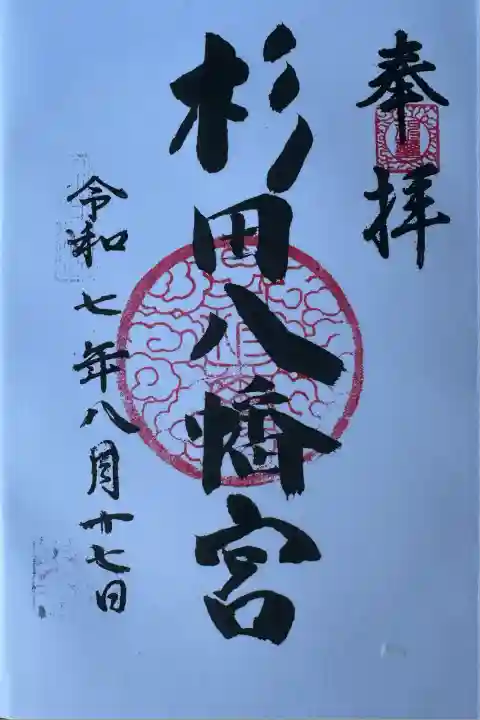 奉拝
杉田八幡宮
令和七年八月廿七日